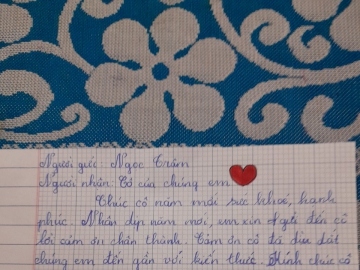 Người gửi: Ngọc Trâm
Người nhận: Cô của chúng em
Chúc cô năm mới sức khoẻ, hạnh
phúc. Nhân dịp năm mới, em xin gửi đến cô
lời cảm ơn chân thành. Cảm ơn cô đã dìu dắt
chúng em đến gần với kiến thức. Kính chúc cô